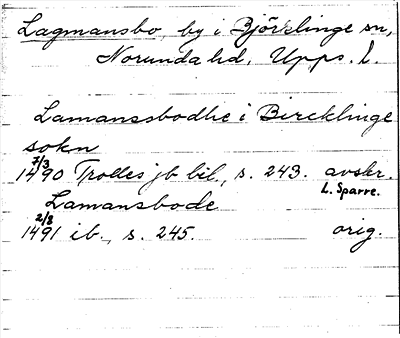 Lagmansbo, by i Björklinge sn,
Norunda hd, Upps. l.
Lamanssbodhe i Bircklinge
sokn
7/3
1490 Trolles jb bil., s. 243. avskr.
L. Sparre.
Lamansbode
2/8
1491 ib., s. 245. orig.